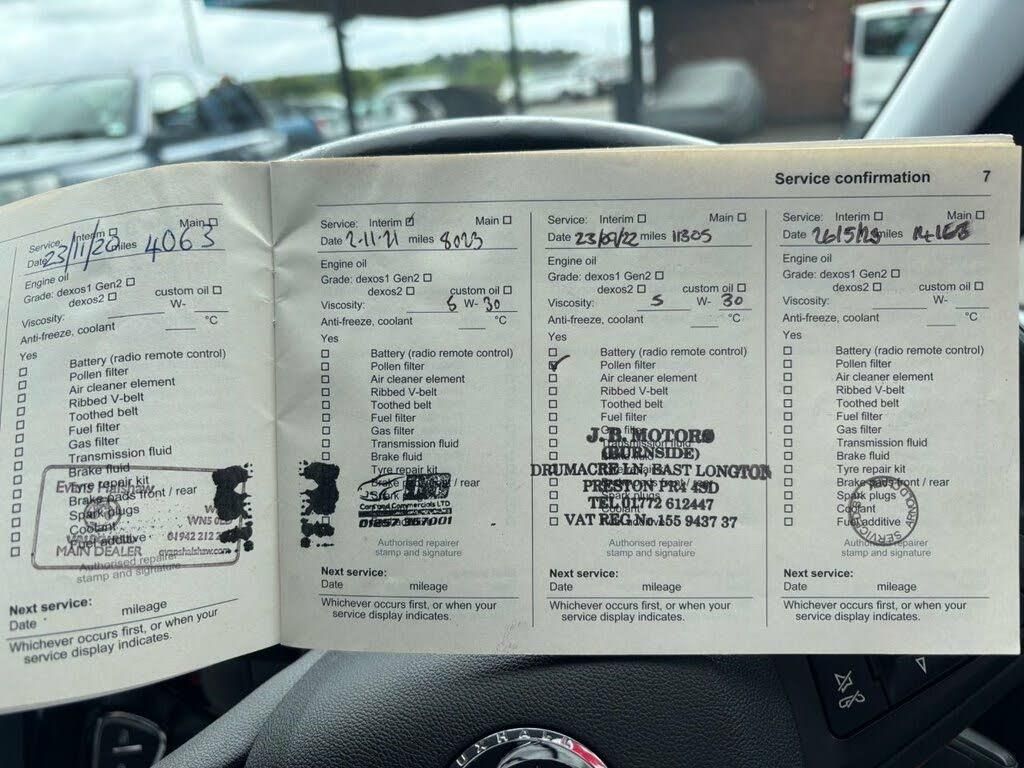 Service confirmation 7
Service: Interim Main
Date 23/11/20 miles 4063
Engine oil
Grade: dexos1 Gen2
dexos2 custom oil
Viscosity: W-
Anti-freeze, coolant °C
Yes
Battery (radio remote control)
Pollen filter
Air cleaner element
Ribbed V-belt
Toothed belt
Fuel filter
Gas filter
Transmission fluid
Brake fluid
Tyre repair kit
Brake pads front / rear
Spark plugs
Coolant
Fuel additive
Evans Halshaw
WN5
01942 212
MAIN DEALER evanshalshaw.com
Authorised repairer
stamp and signature
Next service:
Date mileage
Whichever occurs first, or when your
service display indicates.
Service: Interim Main
Date 2-11-21 miles 8023
Engine oil
Grade: dexos1 Gen2
dexos2 custom oil
Viscosity: 5 W- 30
Anti-freeze, coolant °C
Yes
Battery (radio remote control)
Pollen filter
Air cleaner element
Ribbed V-belt
Toothed belt
Fuel filter
Gas filter
Transmission fluid
Brake fluid
Tyre repair kit
Brake pads front / rear
Cars and Commercials LTD
01257 367001
Authorised repairer
stamp and signature
Next service:
Date mileage
Whichever occurs first, or when your
service display indicates.
Service: Interim Main
Date 23/09/22 miles 11305
Engine oil
Grade: dexos1 Gen2
dexos2 custom oil
Viscosity: 5 W- 30
Anti-freeze, coolant °C
Yes
Battery (radio remote control)
Pollen filter
Air cleaner element
Ribbed V-belt
Toothed belt
Fuel filter
Gas filter
J. B. MOTORS
Transmission fluid
(BURNSIDE)
DRUMACRE LN, EAST LONGTON
PRESTON PR4 4SD
Spark plugs
TEL 01772 612447
VAT REG No 155 9437 37
Authorised repairer
stamp and signature
Next service:
Date mileage
Whichever occurs first, or when your
service display indicates.
Service: Interim Main
Date 26/5/23 miles 14168
Engine oil
Grade: dexos1 Gen2
dexos2 custom oil
Viscosity: W-
Anti-freeze, coolant °C
Yes
Battery (radio remote control)
Pollen filter
Air cleaner element
Ribbed V-belt
Toothed belt
Fuel filter
Gas filter
Transmission fluid
Brake fluid
Tyre repair kit
Brake pads front / rear
Spark plugs
Coolant
Fuel additive
Authorised repairer
stamp and signature
Next service:
Date mileage
Whichever occurs first, or when your
service display indicates.
VAUXHALL